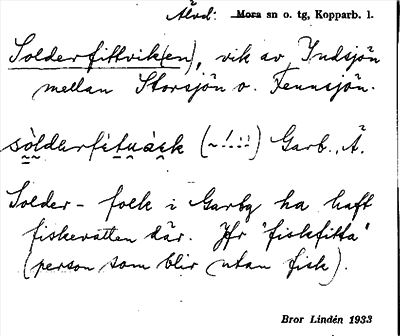 Älvd: Mora sn o. tg, Kopparb. l.
Solderfittvik(en), vik av Indsjön
mellan Storsjön o. Fennsjön.
sòldεrfìtuàik (~!::) Garb., Ä.
Solder- folk i Garbg ha haft
fiskevatten där. Jfr "fiskfitta"
(person som blir utan fisk).
Bror Lindén 1933